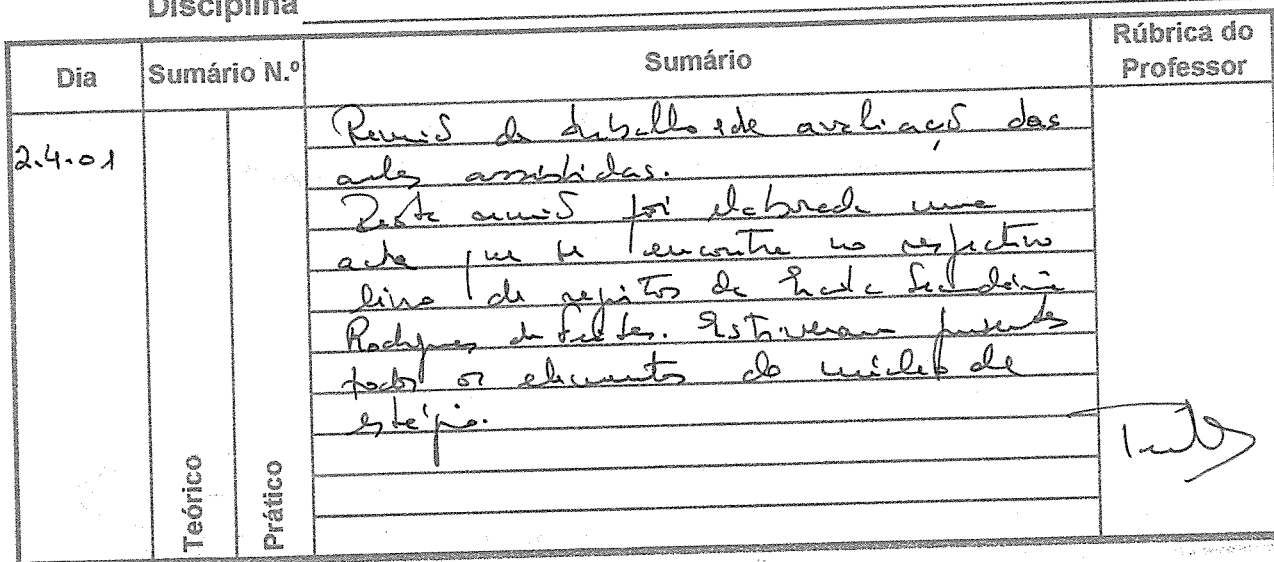 Disciplina
Dia
Sumário N.º
Sumário
Rúbrica do
Professor
2.4.01
Reunião de trabalho e de avaliação das
aulas assistidas.
Desta reunião foi elaborada uma
acta que se encontra no respectivo
livro de registos da Escola Secundária
Rodrigues de Freitas. Estiveram presentes
todos os elementos do núcleo de
estágio.
Teórico
Prático